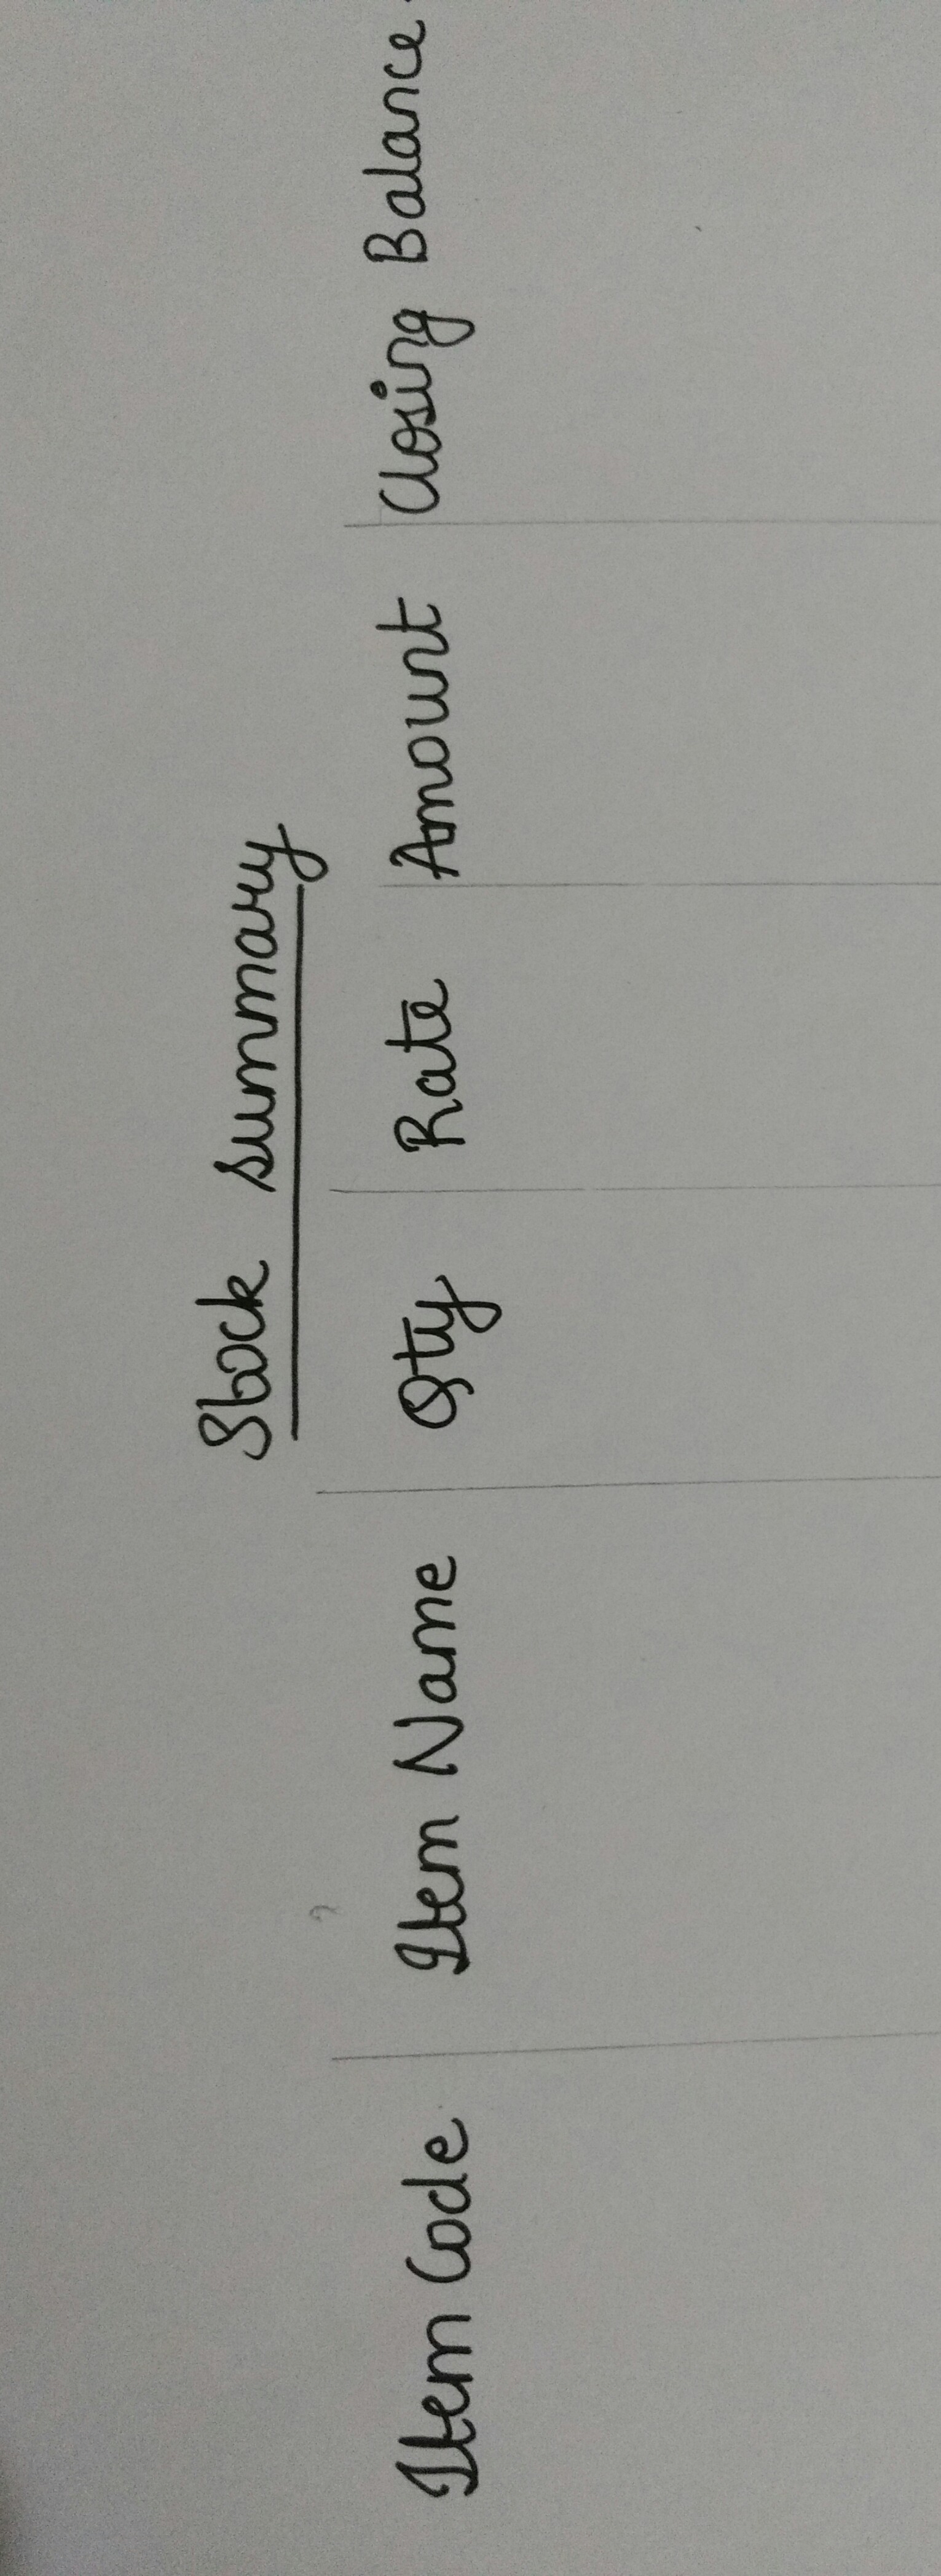 Stock summary
Item Code Item Name Qty Rate Amount Closing Balance